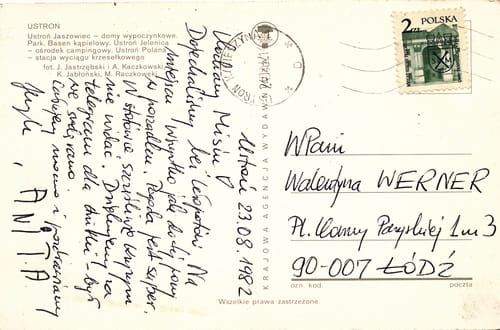 USTROŃ
Ustroń Jaszowiec – domy wypoczynkowe.
Park. Basen kąpielowy. Ustroń Jelenica
– ośrodek campingowy. Ustroń Polana
– stacja wyciągu krzesełkowego
fot. J. Jastrzębski i A. Kaczkowski,
K. Jabłoński, M. Raczkowski
Ustroń 23.08.1982
Kochany Misiu
Dojechaliśmy bez kłopotów. Na
miejscu wszystko jak do tej pory
w porządku. Pogoda jest super.
nie widać. Dziękujemy za
telegram dla
Całujemy mocno i pozdrawiamy
ANITA
KRAJOWA AGENCJA WYDAWNICZA
USTROŃ
POLSKA
2 zł
WPani
Walentyna WERNER
Pl. Komuny Paryskiej 1 m 3
90-007 ŁÓDŹ
ozn. kod. poczta
Wszelkie prawa zastrzeżone